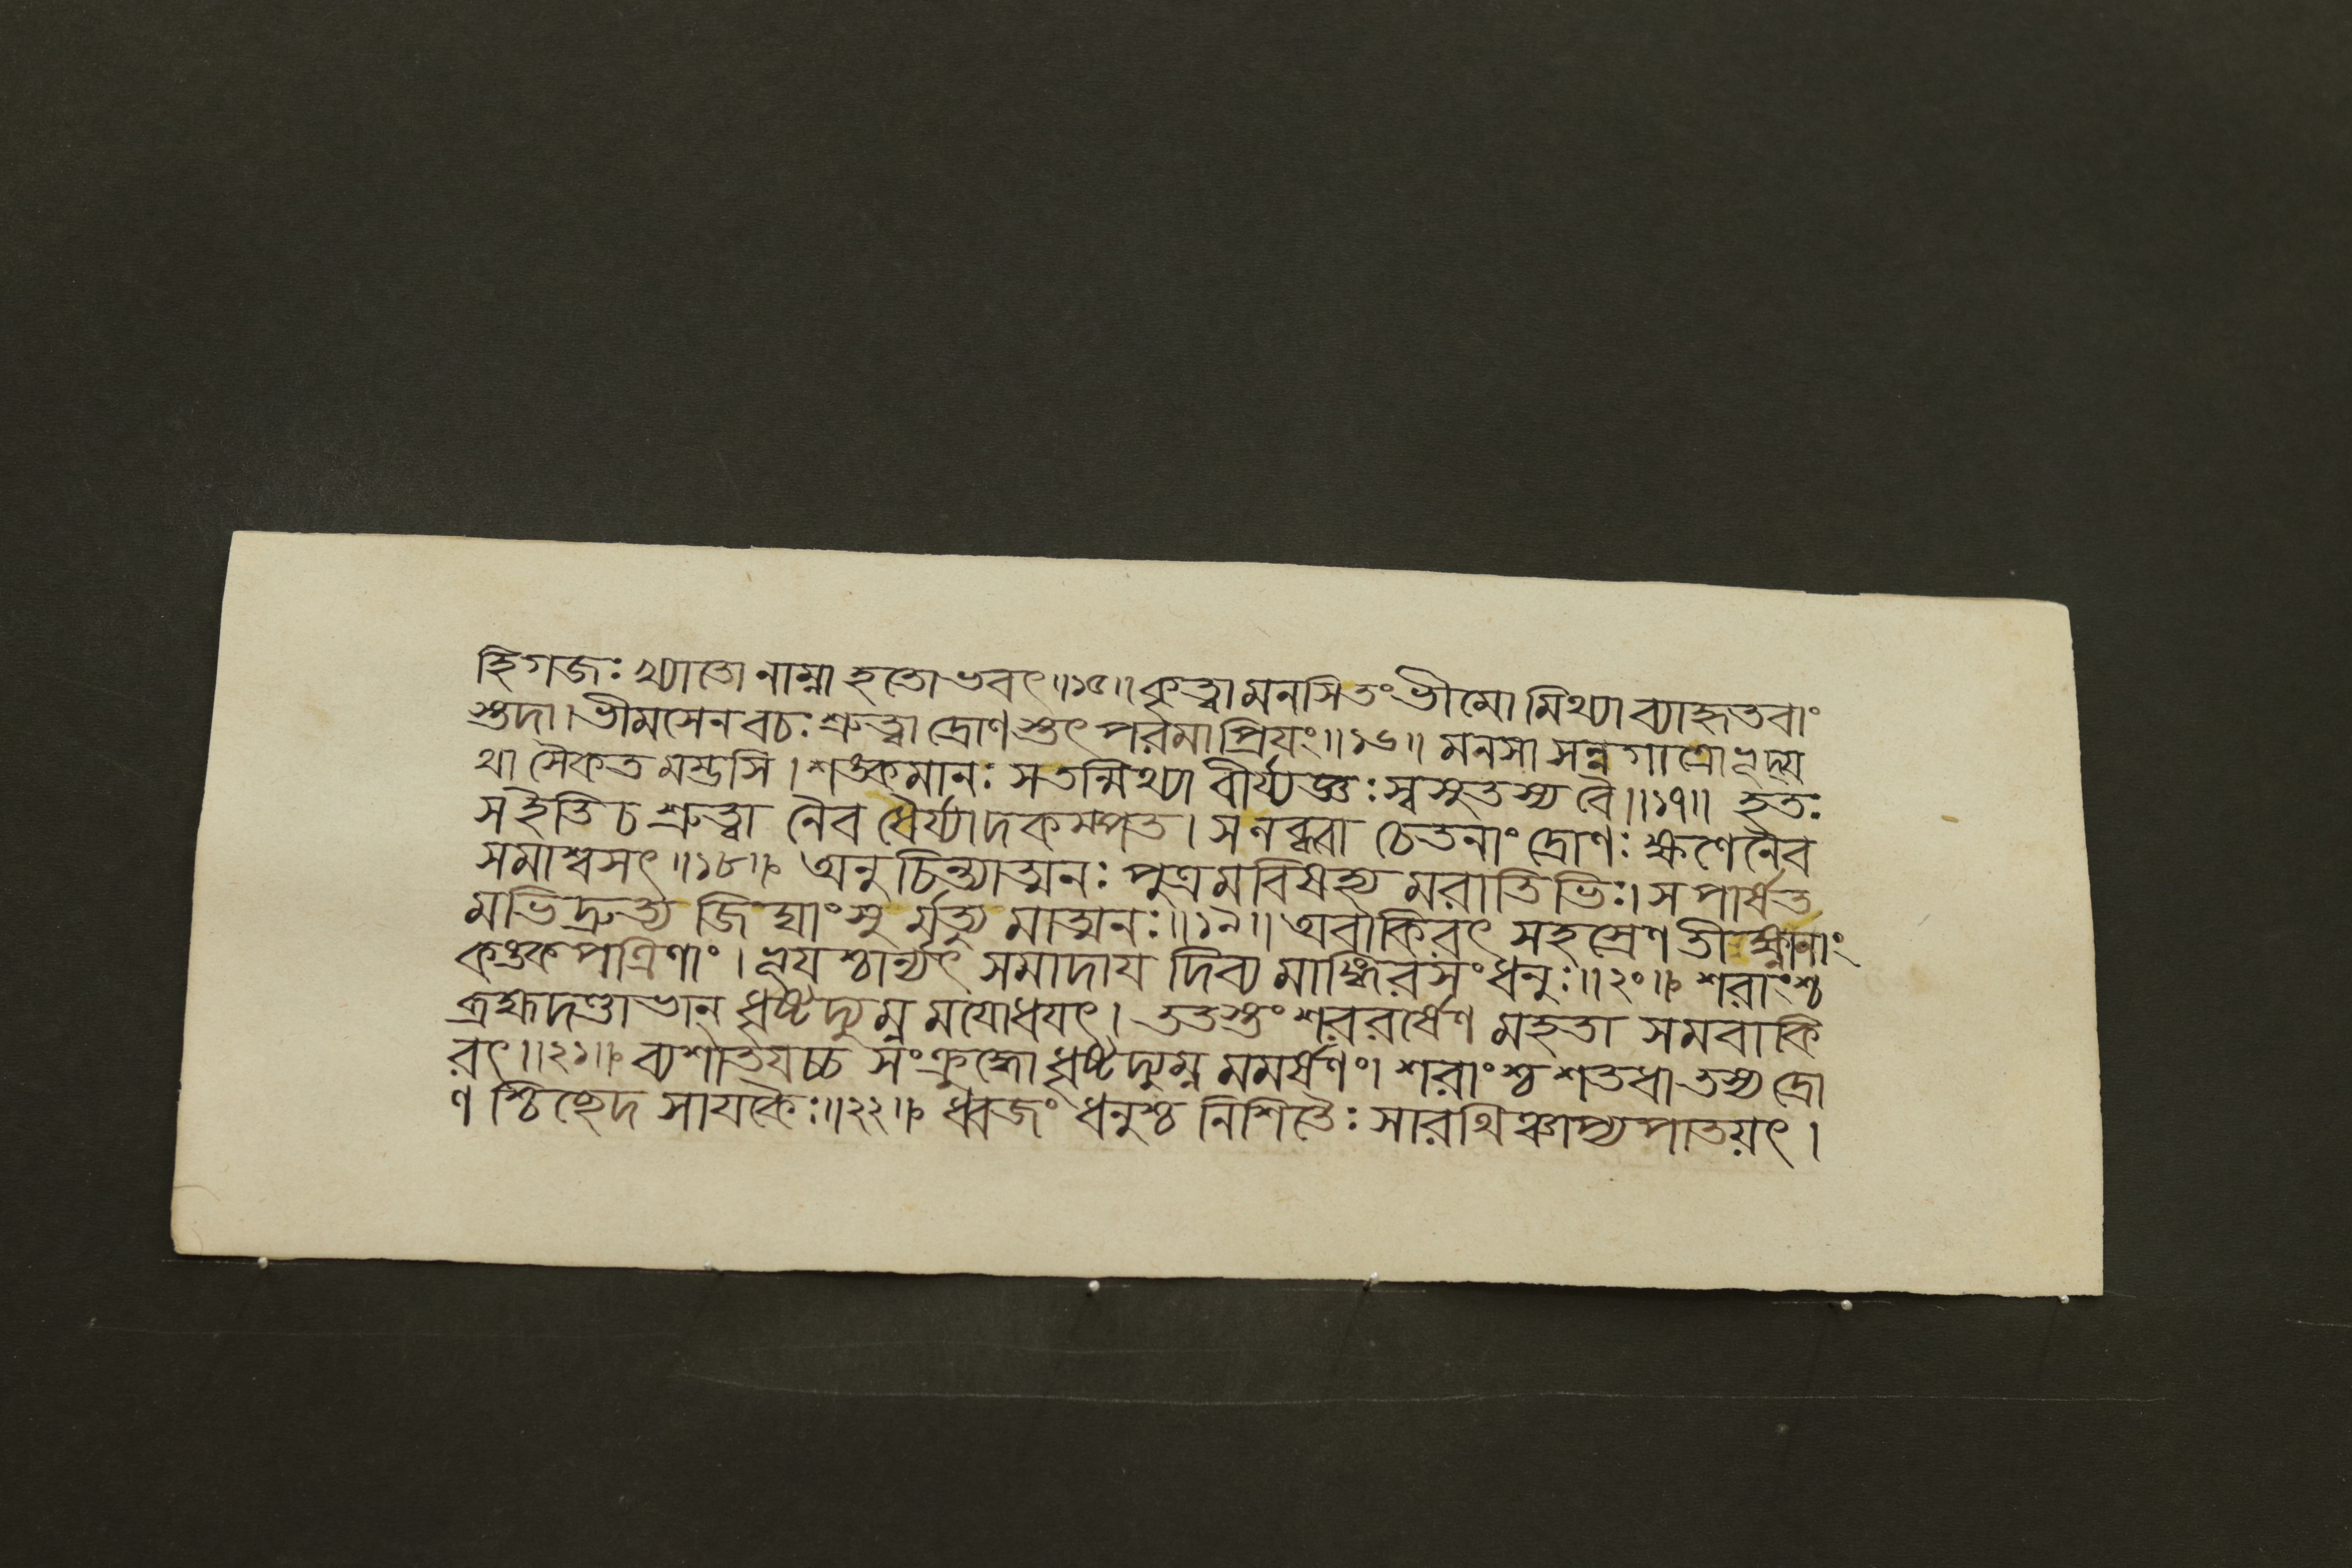 হি গজঃ খ্যাতো নাম্না হতোভবৎ॥১৫॥ কৃত্বা মনসি তং ভীমো মিথ্যা ব্যাহৃতবাং
স্তদা। ভীমসেন বচঃ শ্রুত্বা দ্রোণস্তৎ পরমাপ্রিযং॥১৬॥ মনসা সন্নগাত্রোভূদ্য
থা সৈকত মম্ভসি। শঙ্কমানঃ স তন্মিথ্যা বীর্য্যজ্ঞঃ স্বসুতস্য বৈ॥১৭॥ হতঃ
স ইতি চ শ্রুত্বা নৈব ধৈর্য্যাদকম্পত। স লব্ধ্বা চেতনাং দ্রোণঃ ক্ষণেনৈব
সমাশ্বসৎ॥১৮॥ অনুচিন্ত্যাত্মনঃ পুত্রমবিষহ্য মরাতিভিঃ। স পার্ষত
মভিদ্রুত্য জিঘাংসু র্মৃত্যু মাত্মনঃ॥১৯॥ অবাকিরৎ সহস্রেণ তীক্ষ্ণানাং
কঙ্কপত্রিণাং। ভূয শ্চান্যৎ সমাদায দিব্য মাঙ্গিরসং ধনুঃ॥২০॥ শরাংশ্চ
ব্রহ্মদণ্ডাভান্ ধৃষ্টদ্যুম্ন মযোধযৎ। ততস্তং শরবর্ষেণ মহতা সমবাকি
রৎ॥২১॥ ব্যশাতযচ্চ সংক্রুদ্ধো ধৃষ্টদ্যুম্ন মমর্ষণং। শরাংশ্চ শতধা তস্য দ্রো
ণ শ্চিচ্ছেদ সাযকৈঃ॥২২॥ ধ্বজং ধনুশ্চ নিশিতৈঃ সারথিঞ্চাপ্যপাতয়ৎ।